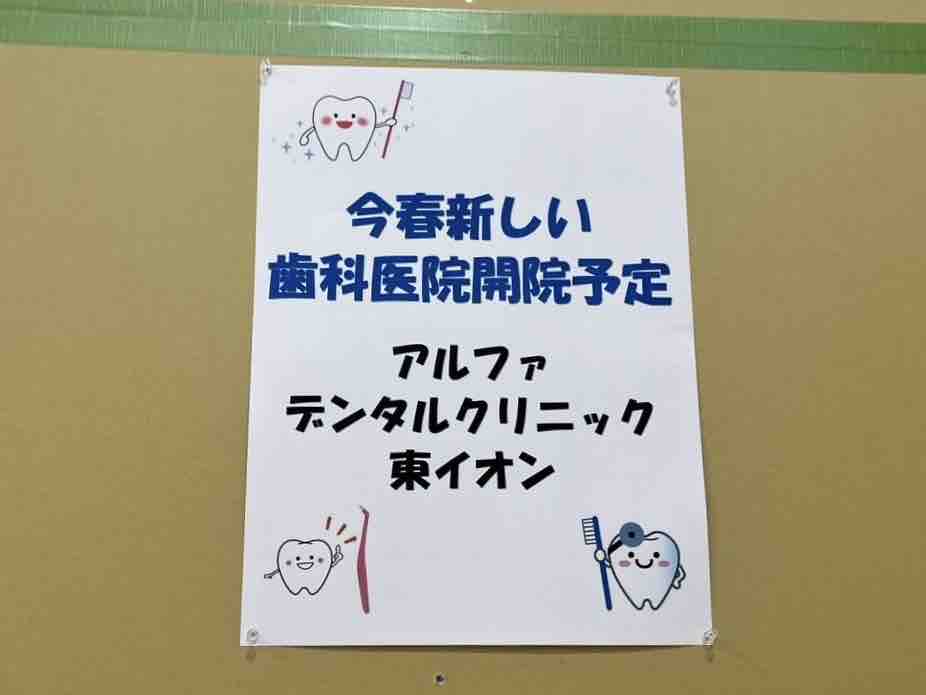 今春新しい
歯科医院開院予定
アルファ
デンタルクリニック
東イオン